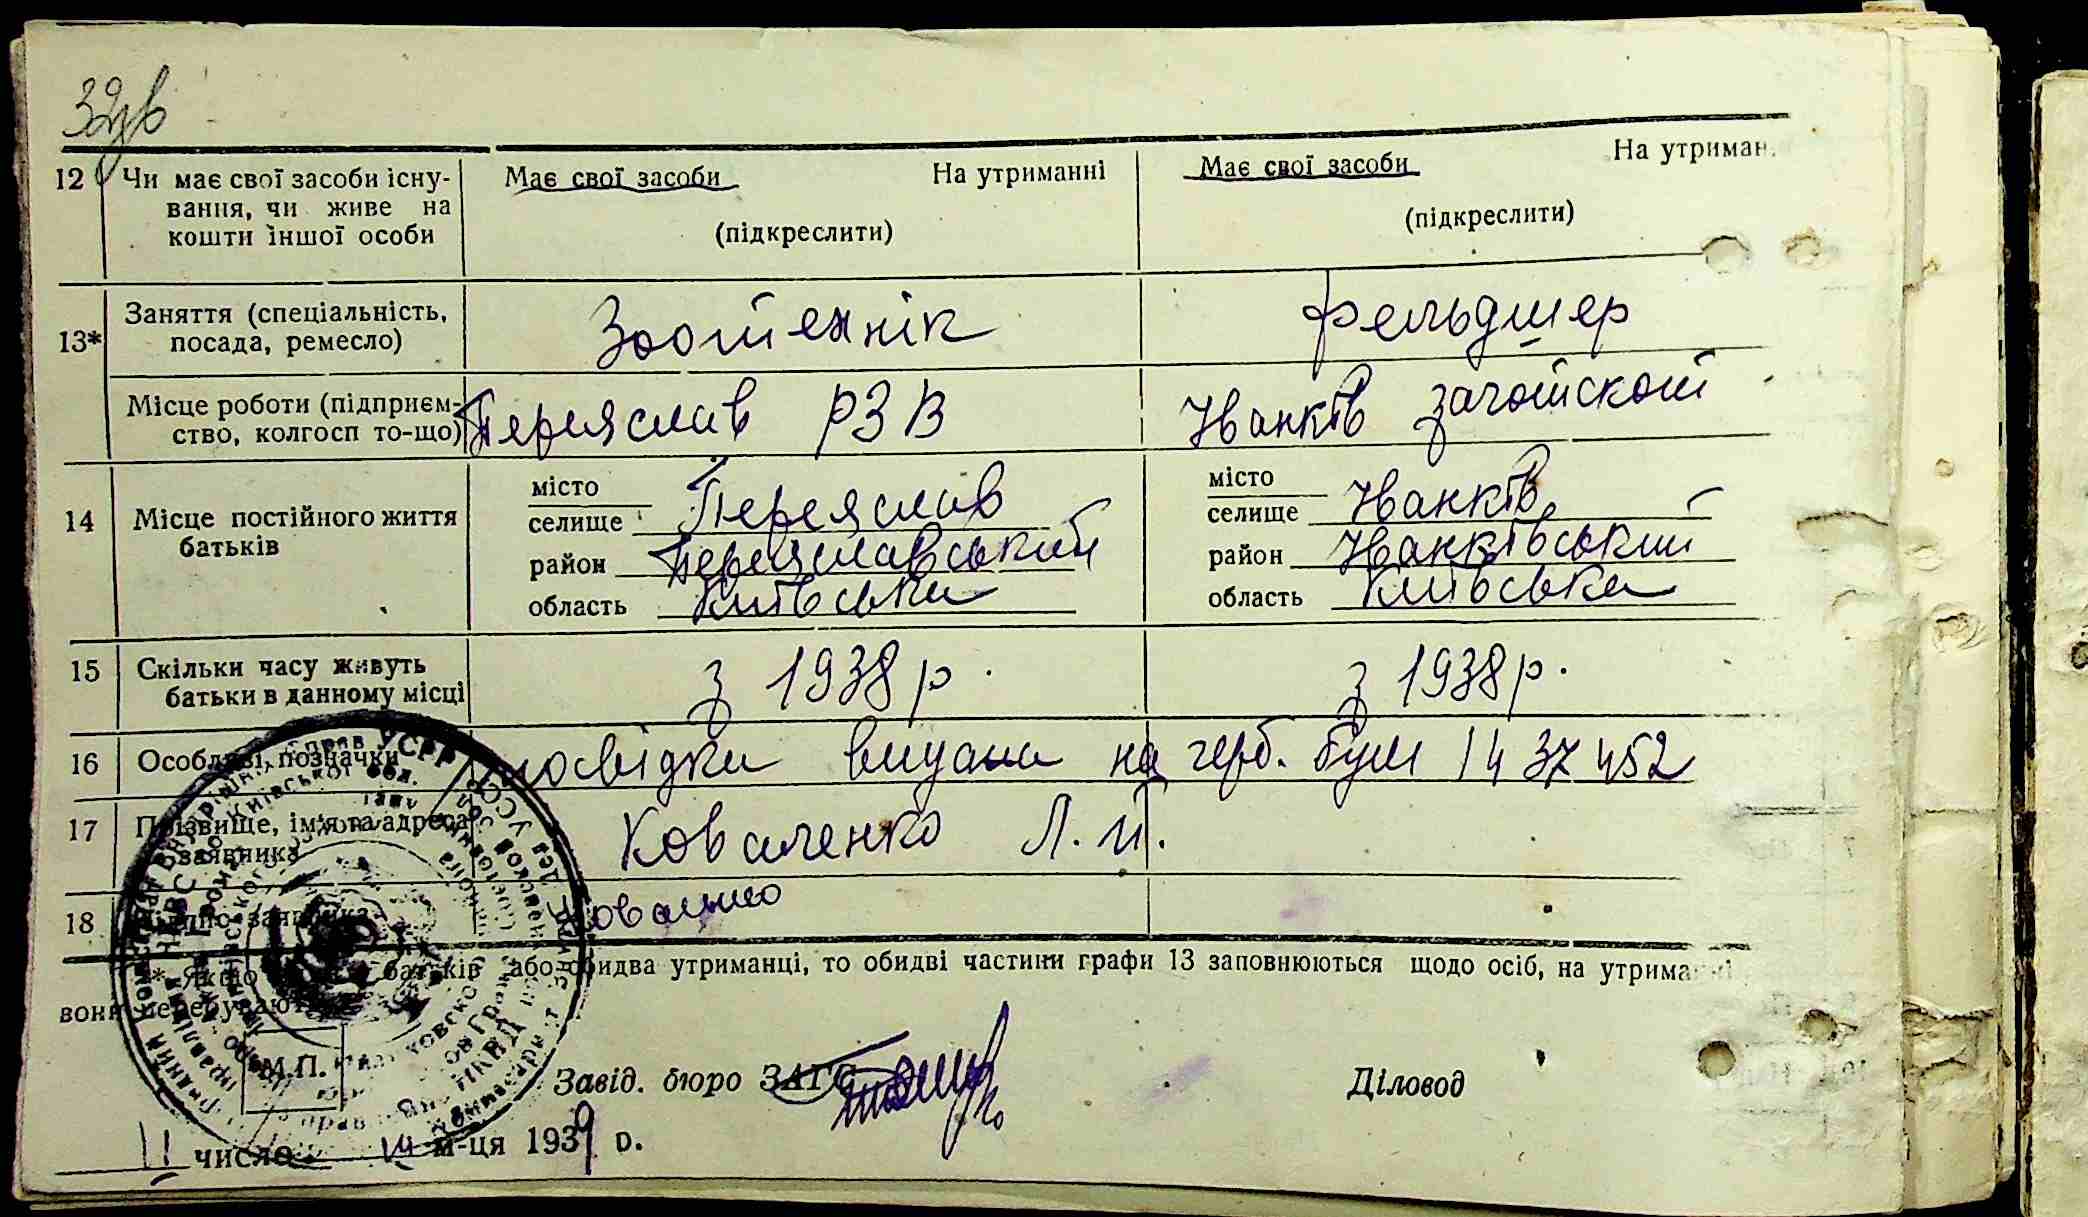 32зв
12 Чи має свої засоби існу- Має свої засоби На утриманні Має свої засоби На утриман
вання, чи живе на
кошти іншої особи (підкреслити) (підкреслити)
13* Заняття (спеціальність, Зоотехнік Фельдшер
посада, ремесло)
Місце роботи (підприєм- Переяслив РЗВ Иванків
ство, колгосп то-що)
14 Місце постійного життя місто Переяслив місто Иванків
батьків селище селище
район Переяславський район Иванківський
область Київська область Київська
15 Скільки часу живуть з 1938 р. з 1938 р.
батьки в данному місці
16 Особливі позначки посвідка видана на герб. бум 1437452
17 Прізвище, ім'я та адреса Коваленко Л. И.
заявника
18 заявника
* Якщо батьків або обидва утриманці, то обидві частини графи 13 заповнюються щодо осіб, на утриманні
вони перебувают
М.П. Завід. бюро ЗАГС Діловод
11 число м-ця 1939 р.
УСРР
Київської обл.
НКВД